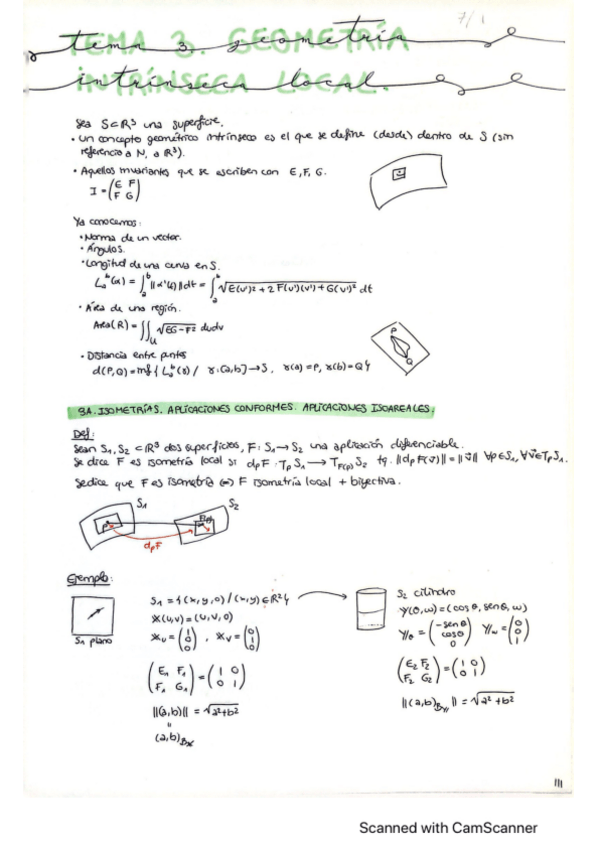 7/1
tema 3. geometría
TEMA 3. GEOMETRÍA
intrínseca local.
INTRÍNSECA LOCAL.
Sea S⊂ℝ³ una superficie.
• Un concepto geométrico intrínseco es el que se define (desde) dentro de S (sin
referencia a N, a ℝ³).
• Aquellos invariantes que se escriben con E, F, G.
I = (E F
F G)
Ya conocemos:
• Norma de un vector.
• Ángulos.
• Longitud de una curva en S.
Lₐᵇ(α) = ∫ₐᵇ ||α'(t)|| dt = ∫ₐᵇ √E(u')² + 2F(u')(v') + G(v')² dt
• Área de una región.
Area(R) = ∬ᵤ √EG-F² dudv
• Distancia entre puntos
d(P,Q) = inf { Lₐᵇ(γ) / γ: [a,b] → S, γ(a) = P, γ(b) = Q }
P
Q
3.1. ISOMETRÍAS. APLICACIONES CONFORMES. APLICACIONES ISOAREALES.
Def:
Sean S₁, S₂ ⊂ ℝ³ dos superficies, F: S₁ → S₂ una aplicación diferenciable.
Se dice F es isometría local si dpF: TpS₁ → T_F(p)S₂ tq. ||dpF(v⃗)|| = ||v⃗|| ∀p∈S₁, ∀v⃗∈TpS₁.
Se dice que F es isometría ⇔ F isometría local + biyectiva.
S₁
S₂
P
F(p)
dpF
Ejemplo:
S₁ plano
S₁ = { (x, y, 0) / (x,y) ∈ ℝ² }
𝕏(u,v) = (u, v, 0)
𝕏u = (1 0 0), 𝕏v = (0 1 0)
(E₁ F₁
F₁ G₁) = (1 0
0 1)
||(a,b)|| = √a²+b²
"
(a,b)B𝕏
S₂ cilindro
𝕐(θ,w) = (cos θ, sen θ, w)
𝕐θ = (-sen θ cos θ 0) 𝕐w = (0 0 1)
(E₂ F₂
F₂ G₂) = (1 0
0 1)
||(a,b)B𝕐|| = √a² + b²
Scanned with CamScanner